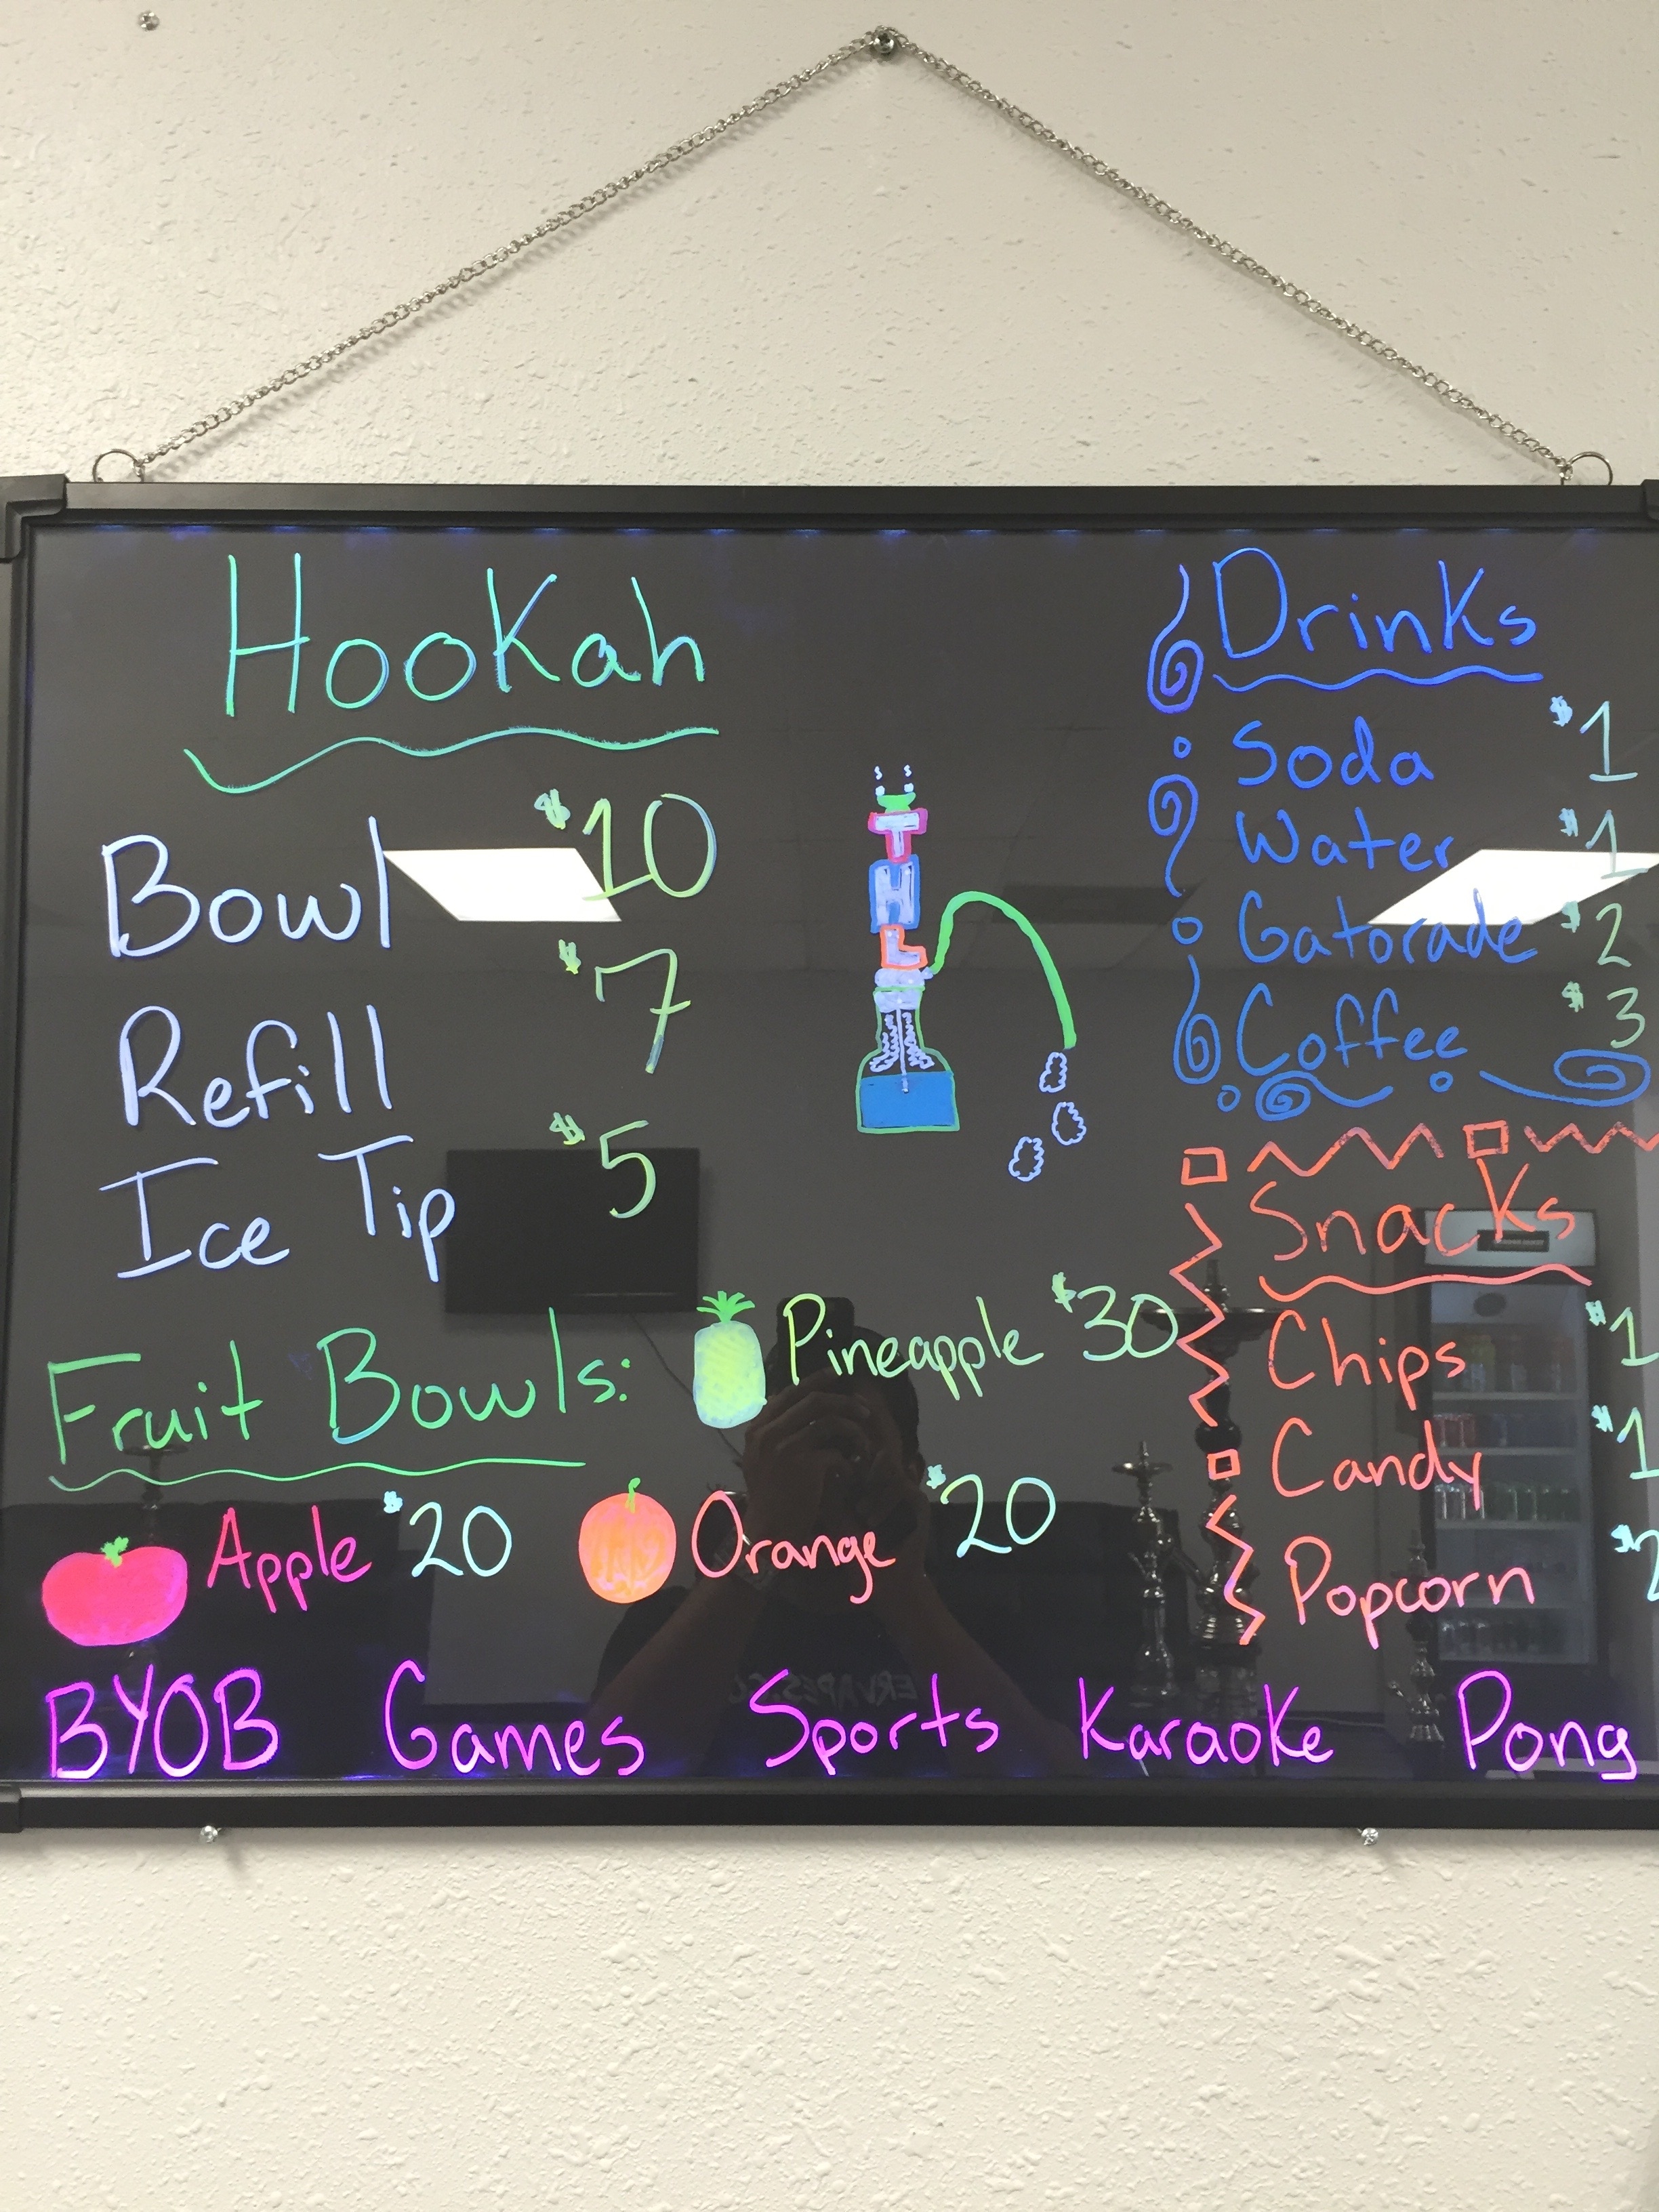 Hookah
Bowl $10
Refill $7
Ice Tip $5
T
H
L
Drinks
Soda $1
Water $1
Gatorade $2
Coffee $3
Snacks
Chips $1
Candy $1
Popcorn
Fruit Bowls: Pineapple $30
Apple $20 Orange $20
BYOB Games Sports Karaoke Pong